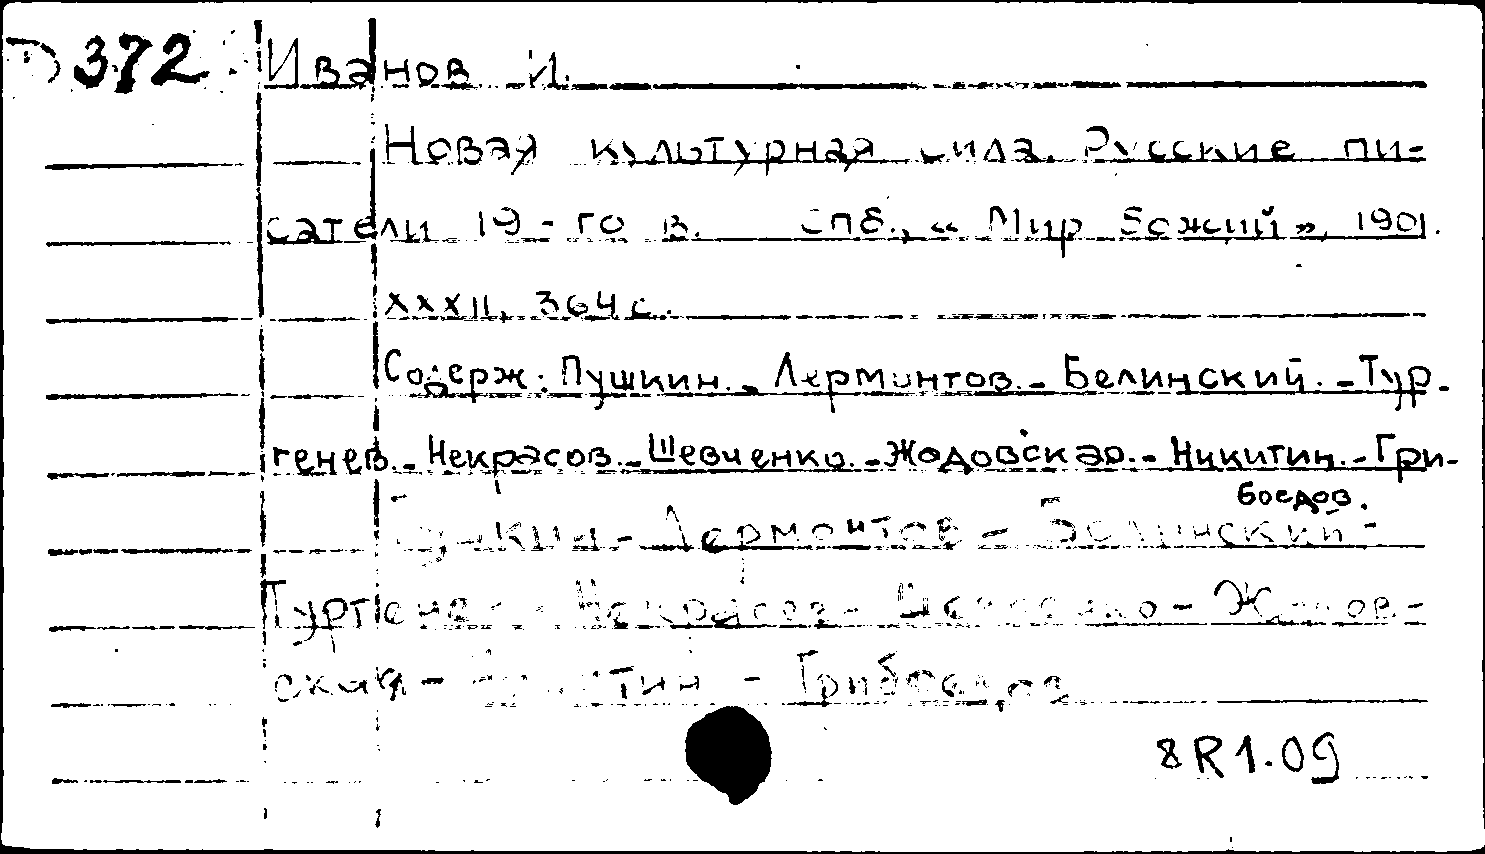 D 372 Иванов И.
Новая культурная сила. Русские пи-
сатели 19-го в. Спб., «Мир Божий», 1901.
XXXII, 364 с.
Содерж: Пушкин. - Лермонтов. - Белинский. - Тур-
генев. - Некрасов. - Шевченко. - Жадовская. - Никитин. - Гри-
боедов.
Пушкин - Лермонтов - Белинский -
Тургенев - Некрасов - Шевченко - Жадов-
ская - Никитин - Грибоедов
8R1.09